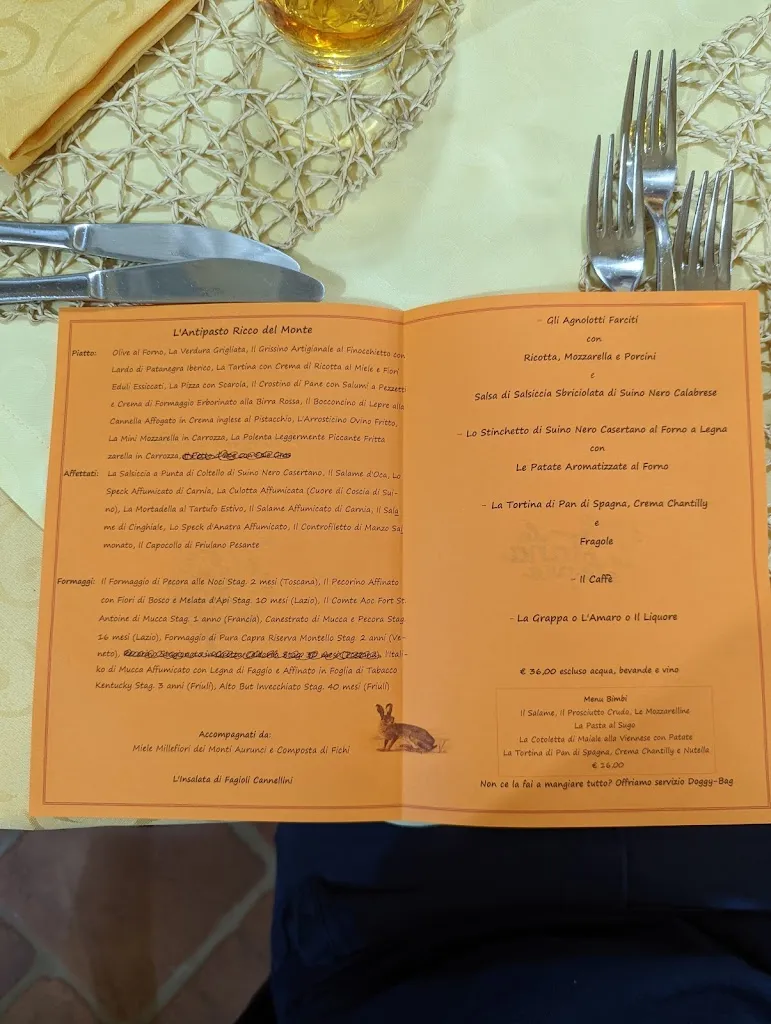 L'Antipasto Ricco del Monte
Piatto: Olive al Forno, La Verdura Grigliata, Il Grissino Artigianale al Finocchietto con
Lardo di Patanegra Iberico, La Tartina con Crema di Ricotta al Miele e Fiori
Eduli Essiccati, La Pizza con Scarola, Il Crostino di Pane con Salumi a Pezzetti
e Crema di Formaggio Erborinato alla Birra Rossa, Il Bocconcino di Lepre alla
Cannella Affogato in Crema inglese al Pistacchio, L'Arrosticino Ovino Fritto,
La Mini Mozzarella in Carrozza, La Polenta Leggermente Piccante Fritta
zarella in Carrozza,
Affettati: La Salsiccia a Punta di Coltello di Suino Nero Casertano, Il Salame d'Oca, Lo
Speck Affumicato di Carnia, La Culotta Affumicata (Cuore di Coscia di Sui-
no), La Mortadella al Tartufo Estivo, Il Salame Affumicato di Carnia, Il Sala
me di Cinghiale, Lo Speck d'Anatra Affumicato, Il Controfiletto di Manzo Sal
monato, Il Capocollo di Friulano Pesante
Formaggi: Il Formaggio di Pecora alle Noci Stag. 2 mesi (Toscana), Il Pecorino Affinato
con Fiori di Bosco e Melata d'Api Stag. 10 mesi (Lazio), Il Comte Aoc Fort St.
Antoine di Mucca Stag. 1 anno (Francia), Canestrato di Mucca e Pecora Stag.
16 mesi (Lazio), Formaggio di Pura Capra Riserva Montello Stag. 2 anni (Ve-
neto), l'Ital-
ko di Mucca Affumicato con Legna di Faggio e Affinato in Foglia di Tabacco
Kentucky Stag. 3 anni (Friuli), Alto But Invecchiato Stag. 40 mesi (Friuli)
Accompagnati da:
Miele Millefiori dei Monti Aurunci e Composta di Fichi
L'Insalata di Fagioli Cannellini
- Gli Agnolotti Farciti
con
Ricotta, Mozzarella e Porcini
e
Salsa di Salsiccia Sbriciolata di Suino Nero Calabrese
- Lo Stinchetto di Suino Nero Casertano al Forno a Legna
con
Le Patate Aromatizzate al Forno
- La Tortina di Pan di Spagna, Crema Chantilly
e
Fragole
- Il Caffè
- La Grappa o L'Amaro o Il Liquore
€ 36,00 escluso acqua, bevande e vino
Menu Bimbi
Il Salame, Il Prosciutto Crudo, Le Mozzarelline
La Pasta al Sugo
La Cotoletta di Maiale alla Viennese con Patate
La Tortina di Pan di Spagna, Crema Chantilly e Nutella
€ 16,00
Non ce la fai a mangiare tutto? Offriamo servizio Doggy-Bag